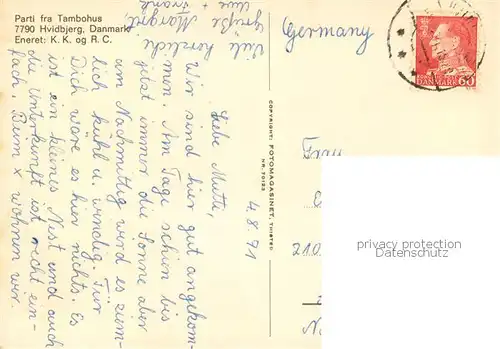 Parti fra Tambohus
7790 Hvidbjerg, Danmark
Eneret: K. K. og R. C.
Germany
4.8.71
Liebe Mutti,
Wir sind hier gut angekom-
men. Am Tage schien bis
jetzt immer die Sonne aber
am Nachmittag wird es ziem-
lich kühl u. windig. Für
Dich wäre es hier nichts. Es
ist ein kleines Nest und auch
die Unterkunft ist recht ein-
fach. Beim x wohnen wir.
Viele herzliche
Grüße Margret,
Uwe + Frank
COPYRIGHT: FOTOMAGASINET, THISTED
NR. 70/23
DANMARK 60
Frau
210
privacy protection
Datenschutz